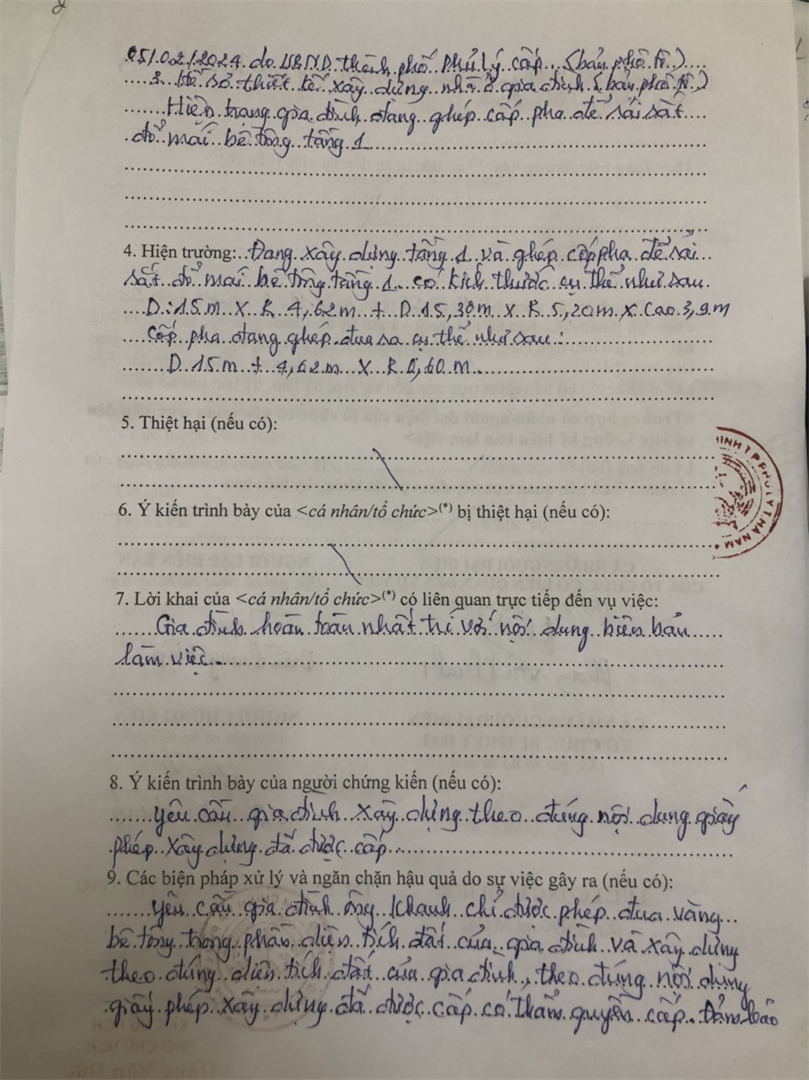 05/02/2024 do UBND thành phố Phủ Lý cấp (bản phô tô)
3. Hồ sơ thiết kế xây dựng nhà ở gia đình (bản phô tô)
Hiện trạng gia đình đang ghép cốp pha để sải sắt
đổ mái bê tông tầng 1
4. Hiện trường: Đang xây dựng tầng 1 và ghép cốp pha để sải
sắt đổ mái bê tông tầng 1 có kích thước cụ thể như sau
D: 15 m x R 4,62 m + D 15,30 m x R 5,20 m x Cao 3,9 m
Cốp pha đang ghép đua ra cụ thể như sau:
D 15 m + 4,62 m x R 0,60 m
5. Thiệt hại (nếu có):
6. Ý kiến trình bày của <cá nhân/tổ chức>(*) bị thiệt hại (nếu có):
7. Lời khai của <cá nhân/tổ chức>(*) có liên quan trực tiếp đến vụ việc:
Gia đình hoàn toàn nhất trí với nội dung biên bản
làm việc.
8. Ý kiến trình bày của người chứng kiến (nếu có):
Yêu cầu gia đình xây dựng theo đúng nội dung giấy
phép xây dựng đã được cấp
9. Các biện pháp xử lý và ngăn chặn hậu quả do sự việc gây ra (nếu có):
Yêu cầu gia đình ông Khanh chỉ được phép đua văng
bê tông trong phần diện tích đất của gia đình và xây dựng
theo đúng diện tích đất của gia đình, theo đúng nội dung
giấy phép xây dựng đã được cấp có thẩm quyền cấp. Đảm bảo